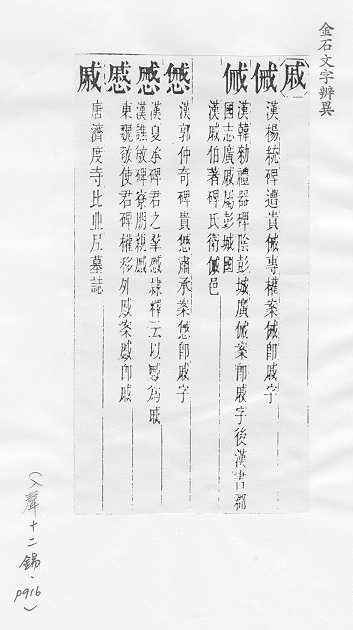 金石文字辨異
戚
漢楊統碑遭貴戚專權案戚即戚字
漢韓勑禮器碑陰彭城廣戚案即戚字後漢書郡
國志廣戚屬彭城國
漢戚伯著碑氏衛戚邑
慼 漢郭仲奇碑貴慼肅承案慼即戚字
慼 漢夏承碑君之羣慼隸釋云以慼為戚
漢譙敏碑寮朋親慼
慼 東魏敬使君碑權移外慼案慼即戚
戚 唐濟度寺比丘尼墓誌
(入聲十二錫.p916)